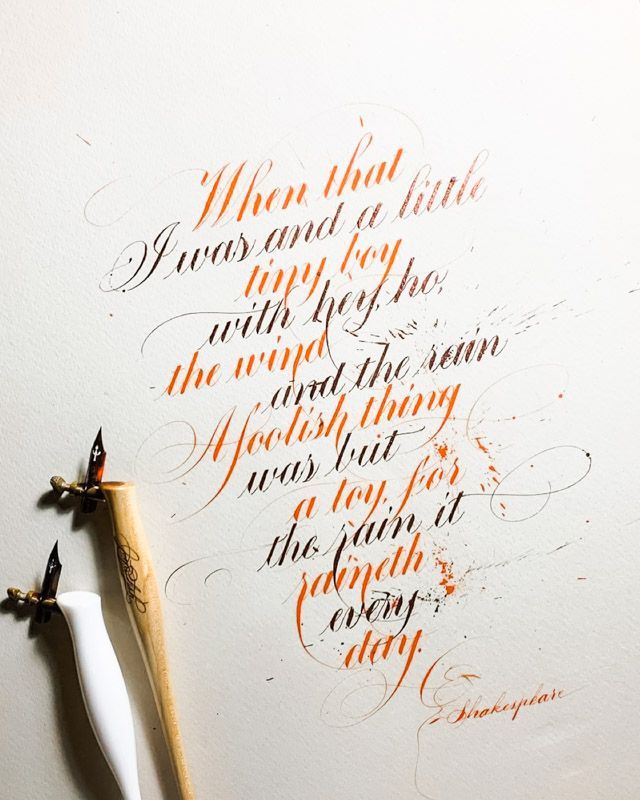 When that
I was and a little
tiny boy
with hey, ho,
the wind
and the rain
A foolish thing
was but
a toy, for
the rain it
raineth
every
day.
Shakespeare